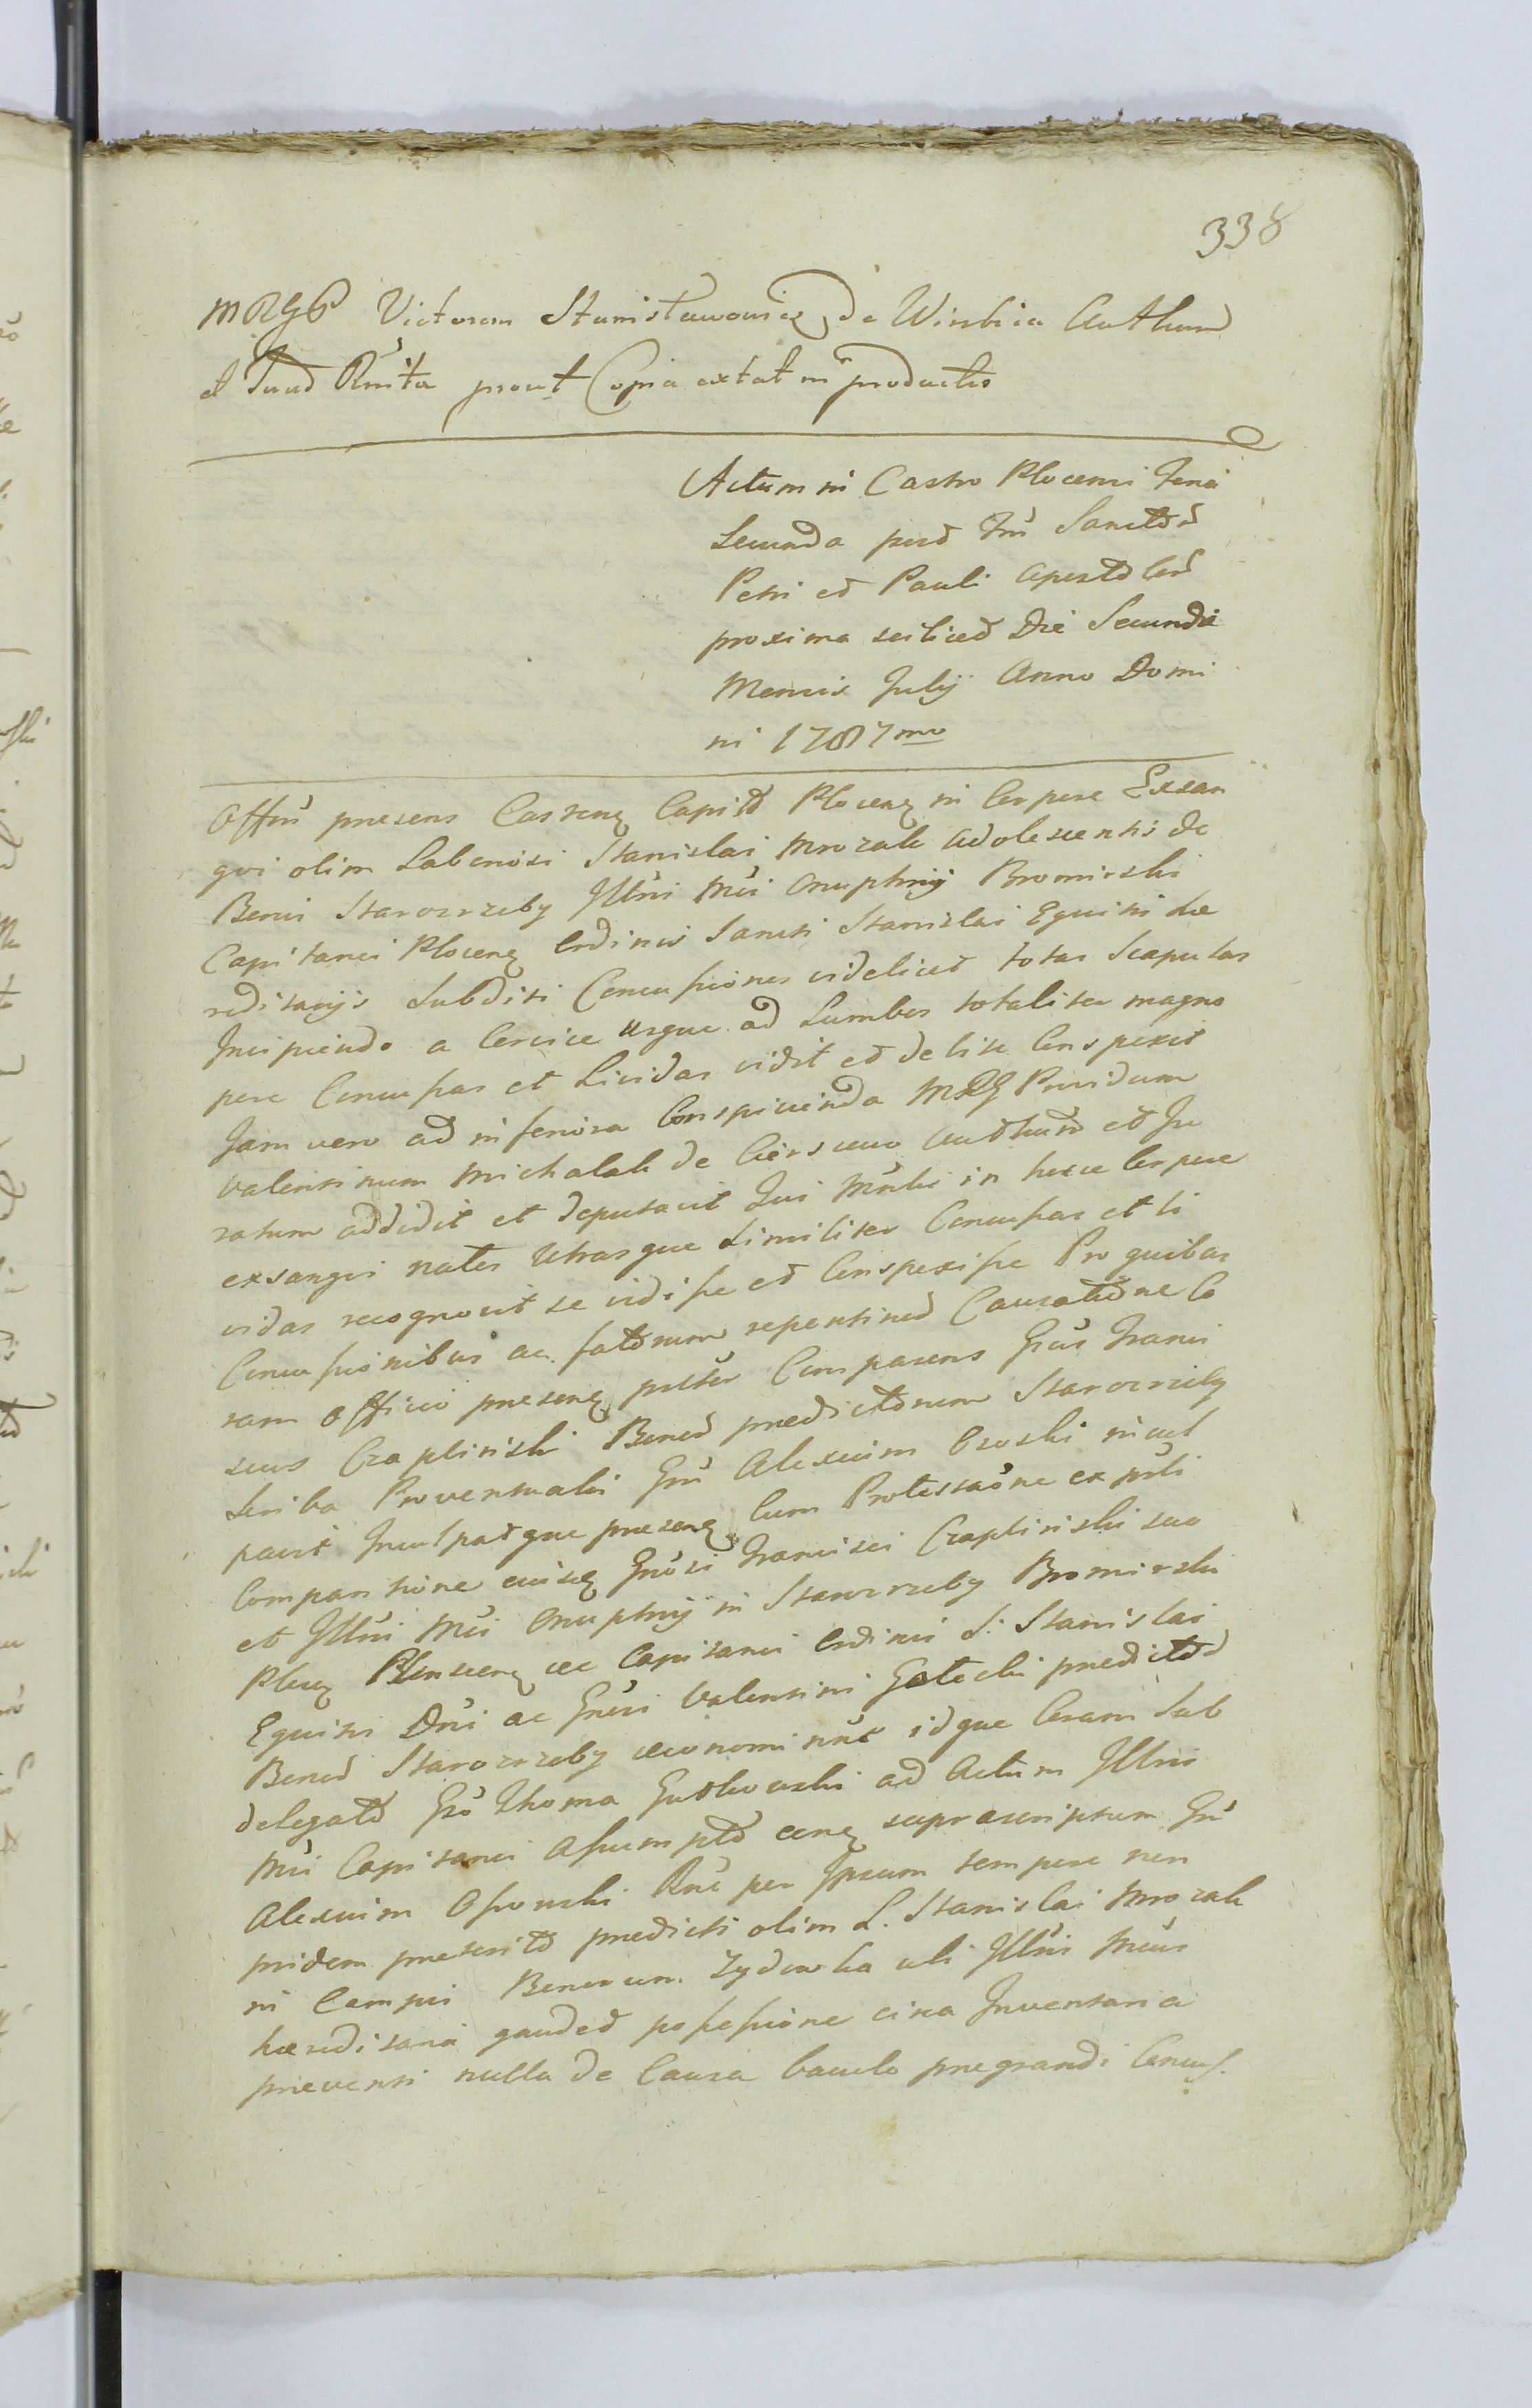 338
MRGP Victorem Stanisławowicz de Winbica Authum
et Jurad Rmita prout Copia extat in productis
Actum in Castro Plocensi Feria
Secunda post Fm Sanctor
Petri et Pauli Apostolor
proxima scilicet Die Secunda
Mensis Julij Anno Domi
ni 1787mo
Offm presens Castren Capitt Plocen in Corpore Exsan
gvi olim Laboriosi Stanislai Mrozak Adolescentis de
Bonis Starozrzeby Illmi Mci Onuphrij Bromirski
Capitanei Plocen Ordinis Sancti Stanislai Equitis hæ
reditarijs Subditi Concussiones videlicet totas Scapulas
Incipiendo a Cervice Usque ad Lumbos totaliter magno
pere Concussas et Lividas vidit et de lite Conspexit
Jam vero ad inferiora Conspicienda MRG Providum
Valentinum Michalak de Ciersiewo Authum et Ju
ratum addidit et deputavit Qui Mnlis in hocce Corpore
exsangvi nates Utrasque Similiter Concussas et li
vidas recognovit se vidisse et Conspexisse Pro quibus
Concussionibus ac fatorum repentined Causatione Co
ram Officio presen ptter Comparens Gsus Franci
scus Czaplinski Bonor predictorum Starozrzeby
Scriba Proventualis Gsm Alexium Ososki incul
pavit Inculpatque presen Cum Protestatione ex psti
Comparitione eiusd Gnosi Francisci Czaplinski suo
et Illmi Mci Onuphrij in Starozrzeby Bromirski
Ploc Plonscen ac Capitanei Ordinis S: Stanislai
Equitis Dni ac Gnosi Valentini Golecki predictor
Bonor Starozrzeby œconomi nne idque Coram Sub
delegato Gso Thoma Gutkowski ad Actum Illmi
Mci Capitanei Assumpto cen suprascriptum Gsm
Alexium Osowski Rne per Ipsum tempore non
pridem preterito predicti olim L. Stanislai Mrozak
in Campis Bonorum Zydowka ubi Illmus Mcus
hæreditaria gaudet possessione circa Inventaria
preventi nulla de Causa baculo pregrandi Concus.